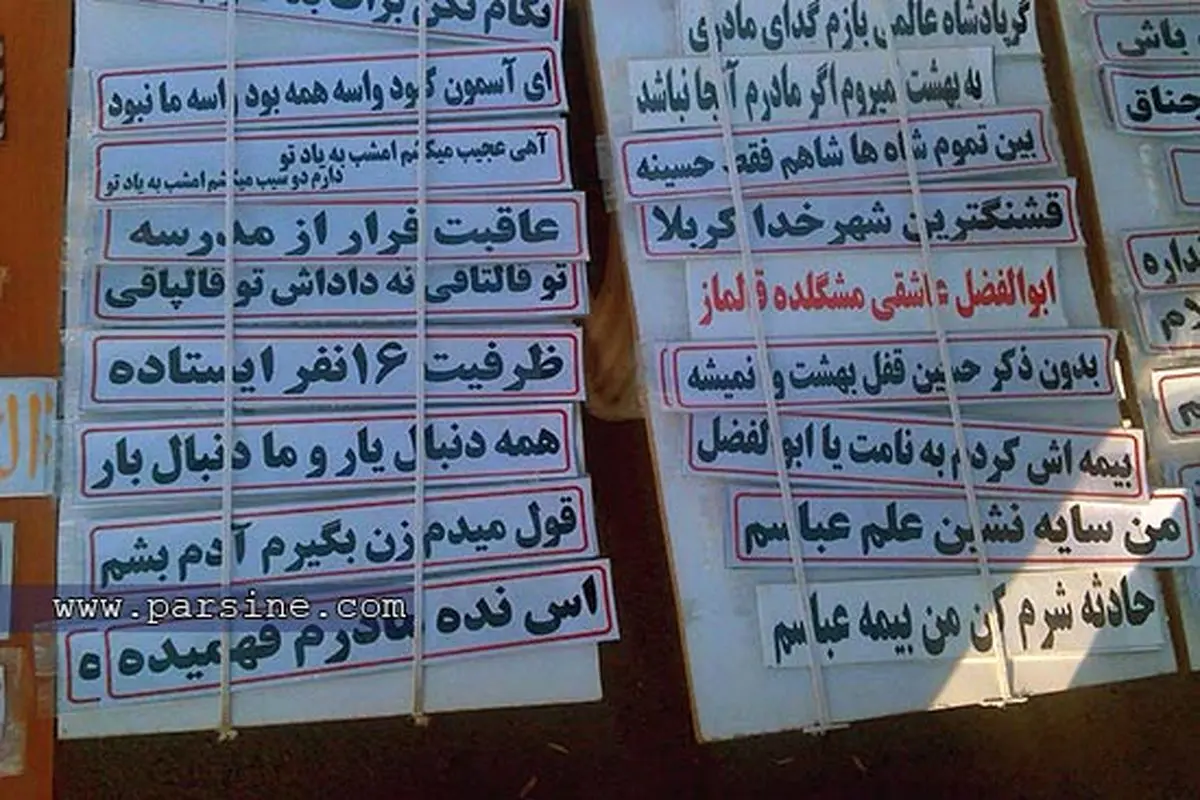 نگام نکن برات بد
ای آسمون کبود واسه همه بود واسه ما نبود
آهی عجیب میکشم امشب به یاد تو
دارم دو سیب میکشم امشب به یاد تو
عاقبت فرار از مدرسه
تو قالتاقی نه داداش تو قالپاقی
ظرفیت ۱۶نفر ایستاده
همه دنبال یار و ما دنبال بار
قول میدم زن بگیرم آدم بشم
اس نده مادرم فهمیده
ه
www.parsine.com
گر پادشاه عالمی بازم گدای مادری
به بهشت نمیروم اگر مادرم آنجا نباشد
بین تموم شاه ها شاهم فقط حسینه
قشنگترین شهر خدا کربلا
ابوالفضل عاشقی مشگلده قالماز
بدون ذکر حسین قفل بهشت وا نمیشه
بیمه اش کردم به نامت یا ابوالفضل
من سایه نشین علم عباسم
حادثه شرم کن من بیمه عباسم
باش
جناق
داره
لام
م